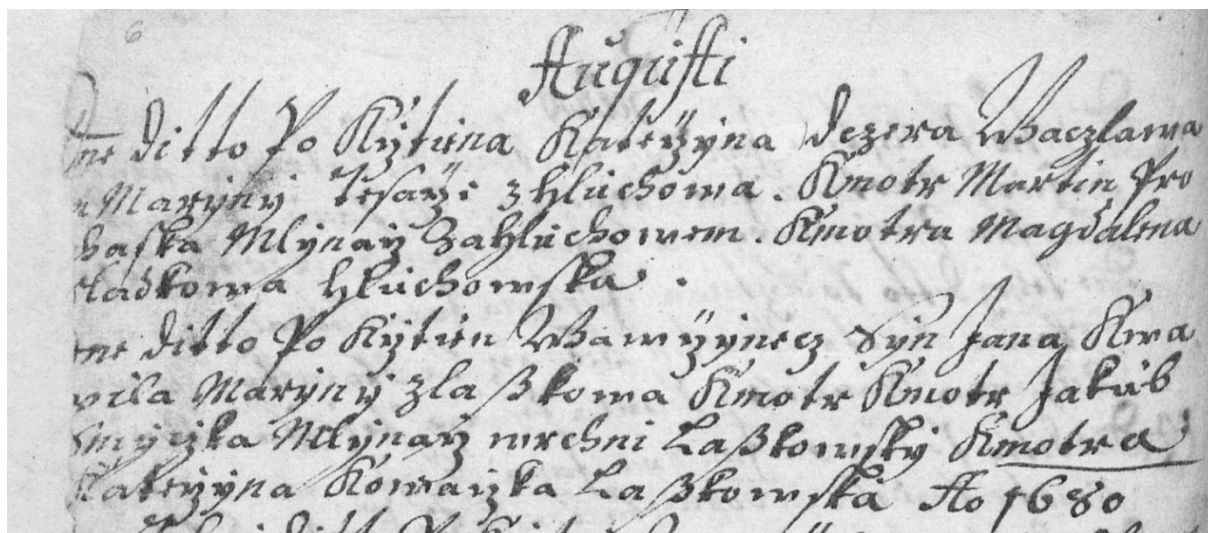 Augusti
ditto Po Kržtiena Kateržyna Dczera Waczlawa
Maryny Tesarže z Hluchowa. Kmotr Martin Pro
haska Mlynarž za Hluchowem. Kmotra Magdalena
Hluchowska.
ditto Po Kržtien Wawržynecz Syn Jana Kwa
pila Maryny z Laßkowa Kmotr Kmotr Jakub
Mlynarž wrchni Laßkowsky Kmotra
Kateržyna Kowaržka Laßkowska Ao 1680